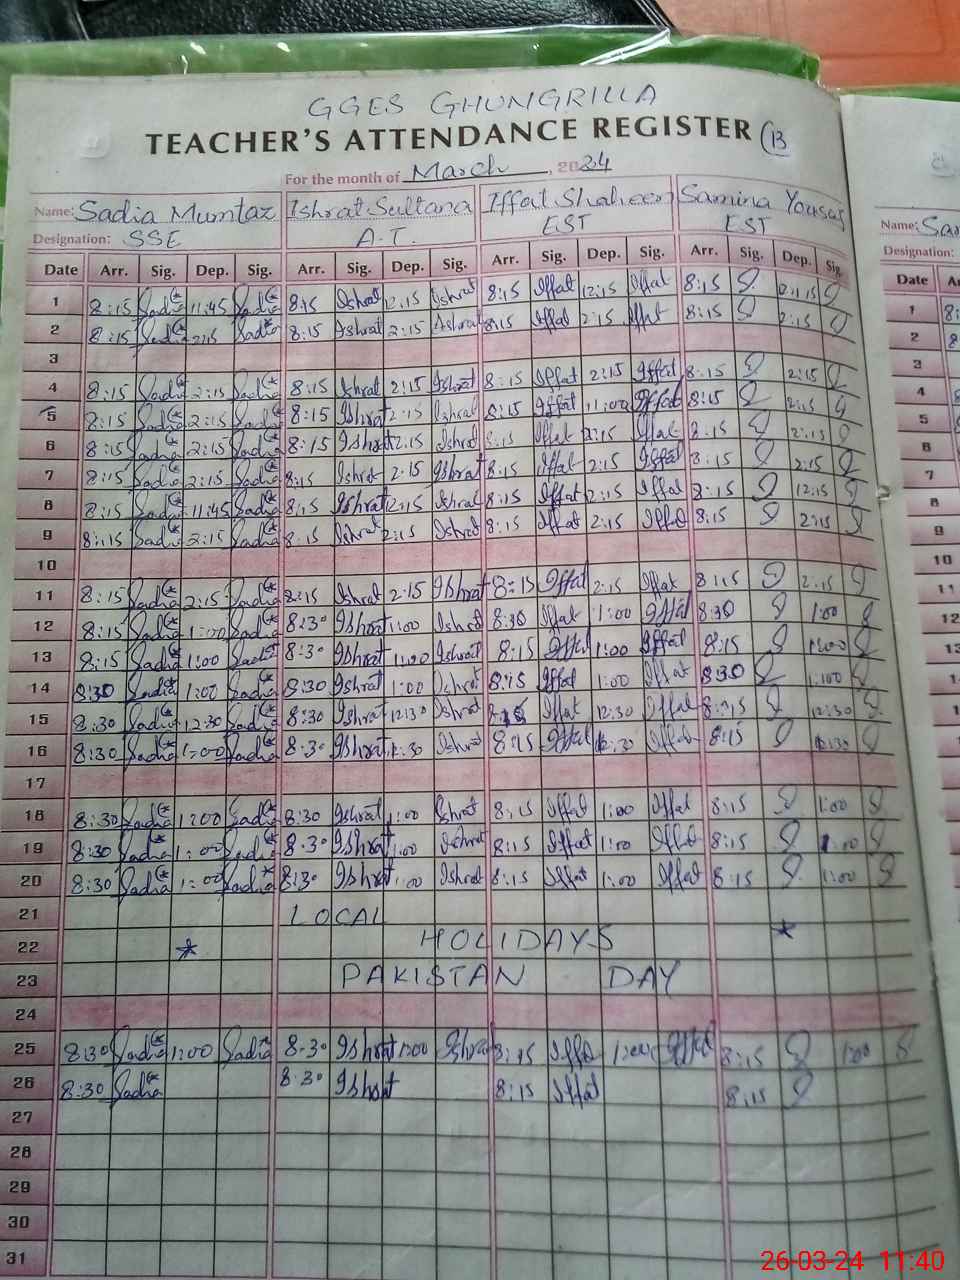 GGES GHUNGRILLA
TEACHER'S ATTENDANCE REGISTER 13
For the month of March, 2024
Name: Sadia Mumtaz Ishrat Sultana Iffat Shaheen Samina Yousaf
Designation: SSE A.T. EST EST
Date Arr. Sig. Dep. Sig. Arr. Sig. Dep. Sig. Arr. Sig. Dep. Sig. Arr. Sig. Dep. Sig.
1 8:15 Sadia 11:45 Sadia 8:15 Ishrat 12:15 Ishrat 8:15 Iffat 12:15 Iffat 8:15 12:15
2 8:15 Sadia 2:15 Sadia 8:15 Ishrat 2:15 Ishrat 8:15 Iffat 2:15 Iffat 8:15 2:15
3
4 8:15 Sadia 2:15 Sadia 8:15 Ishrat 2:15 Ishrat 8:15 Iffat 2:15 Iffat 8:15 2:15
5 8:15 Sadia 2:15 Sadia 8:15 Ishrat 2:15 Ishrat 8:15 Iffat 11:00 Iffat 8:15 2:15
6 8:15 Sadia 2:15 Sadia 8:15 Ishrat 2:15 Ishrat 8:15 Iffat 2:15 Iffat 8:15 2:15
7 8:15 Sadia 2:15 Sadia 8:15 Ishrat 2:15 Ishrat 8:15 Iffat 2:15 Iffat 8:15 2:15
8 8:15 Sadia 11:45 Sadia 8:15 Ishrat 12:15 Ishrat 8:15 Iffat 12:15 Iffat 8:15 12:15
9 8:15 Sadia 2:15 Sadia 8:15 Ishrat 2:15 Ishrat 8:15 Iffat 2:15 Iffat 8:15 2:15
10
11 8:15 Sadia 2:15 Sadia 8:15 Ishrat 2:15 Ishrat 8:15 Iffat 2:15 Iffat 8:15 2:15
12 8:15 Sadia 1:00 Sadia 8:30 Ishrat 1:00 Ishrat 8:30 Iffat 1:00 Iffat 8:30 1:00
13 8:15 Sadia 1:00 Sadia 8:30 Ishrat 1:00 Ishrat 8:15 Iffat 1:00 Iffat 8:15 1:00
14 8:30 Sadia 1:00 Sadia 8:30 Ishrat 1:00 Ishrat 8:15 Iffat 1:00 Iffat 8:30 1:00
15 8:30 Sadia 12:30 Sadia 8:30 Ishrat 12:30 Ishrat 8:15 Iffat 12:30 Iffat 8:15 12:30
16 8:30 Sadia 1:00 Sadia 8:30 Ishrat 12:30 Ishrat 8:15 Iffat 12:30 Iffat 8:15 12:30
17
18 8:30 Sadia 1:00 Sadia 8:30 Ishrat 1:00 Ishrat 8:15 Iffat 1:00 Iffat 8:15 1:00
19 8:30 Sadia 1:00 Sadia 8:30 Ishrat 1:00 Ishrat 8:15 Iffat 1:00 Iffat 8:15 1:00
20 8:30 Sadia 1:00 Sadia 8:30 Ishrat 1:00 Ishrat 8:15 Iffat 1:00 Iffat 8:15 1:00
21 LOCAL
22 HOLIDAYS
23 PAKISTAN DAY
24
25 8:30 Sadia 1:00 Sadia 8:30 Ishrat 1:00 Ishrat 8:15 Iffat 1:00 Iffat 8:15 1:00
26 8:30 Sadia 8:30 Ishrat 8:15 Iffat 8:15
27
28
29
30
31
Name:
Designation:
Date
1
2
3
4
5
6
7
8
9
10
11
12
26-03-24 11:40